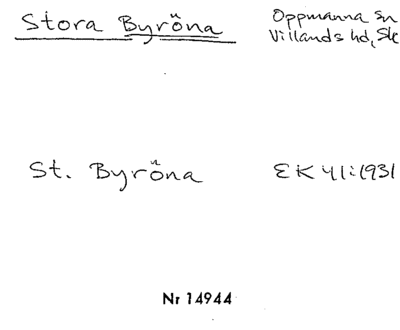 Stora Byröna
Oppmanna Sn
Villands hd, Sk
St. Byröna
EK 41:1931
Nr 14944